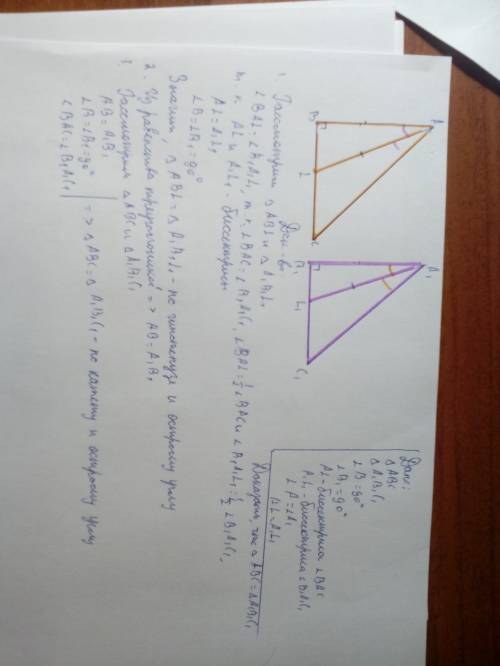 Дано:
△ABC
△A₁B₁C₁
∠B=90°
∠B₁=90°
AL-биссектриса ∠BAC
A₁L₁-биссектриса ∠B₁A₁C₁
∠A=∠A₁
AL=A₁L₁
Доказать, что △ABC=△A₁B₁C₁
A
B
L
C
A₁
B₁
L₁
C₁
Док-во
1. Рассмотрим △ABL и △A₁B₁L₁
∠BAL=∠B₁A₁L₁, т.к. ∠BAC=∠B₁A₁C₁, ∠BAL=½∠BAC и ∠B₁A₁L₁=½∠B₁A₁C₁,
т.к. AL и A₁L₁-биссектрисы
AL=A₁L₁
∠B=∠B₁=90°
Значит, △ABL=△A₁B₁L₁-по гипотенузе и острому углу
2. Из равенства треугольников => AB=A₁B₁
3. Рассмотрим △ABC и △A₁B₁C₁
AB=A₁B₁
∠B=∠B₁=90° => △ABC=△A₁B₁C₁-по катету и острому углу
∠BAC=∠B₁A₁C₁